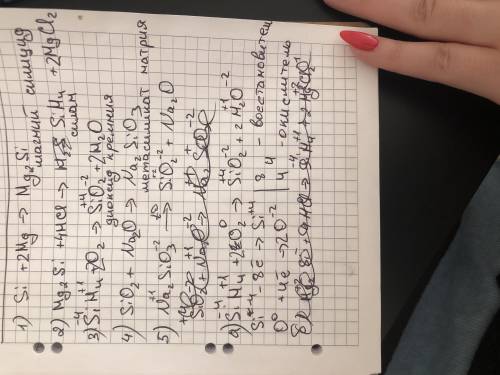 1) Si + 2Mg → Mg₂Si
магний силицид
2) Mg₂Si + 4HCl → SiH₄ + 2MgCl₂
силан
-4 +1 0 +4 -2
3) SiH₄ + 2O₂ → SiO₂ + 2H₂O
диоксид кремния
4) SiO₂ + Na₂O → Na₂SiO₃
метасиликат натрия
5) Na₂SiO₃ → SiO₂ + Na₂O
-4 +1 0 +4 -2 +1 -2
а) SiH₄ + 2O₂ → SiO₂ + 2H₂O
Si⁻⁴ - 8ē → Si⁺⁴ | 8 4 - восстановитель
O⁰ + 4ē → 2O⁻² | 4 - окислитель